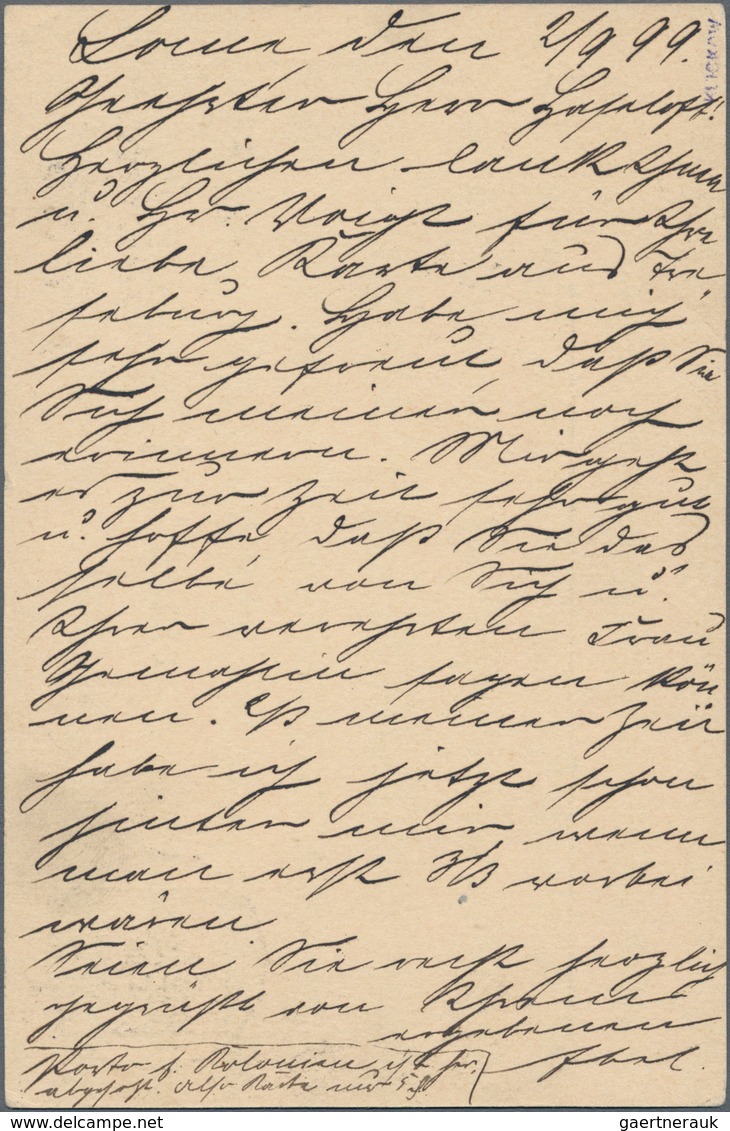 Lome, den 2/9 99.
Geehrter Herr Haseloff!
Herzlichen Dank Ihnen
u. Hr. Voigt für Ihre
liebe Karte aus Tre
seburg. Habe mich
sehr gefreut, daß Sie
Sich meiner noch
erinnern. Mir geht
es zur Zeit sehr gut
u. hoffe, daß Sie das
selbe von Sich u.
Ihrer verehrten Frau
Gemahlin sagen kön
nen. meiner Zeit
habe ich jetzt schon
hinter mir, wenn
man erst 3/3 vorbei
wären.
Seien Sie recht herzlich
gegrüßt von Ihrem
ergebenen
Abel.
Porto f. Kolonien ist
abgesetzt. Also Karte nur 5 ₰
gaertnerauk